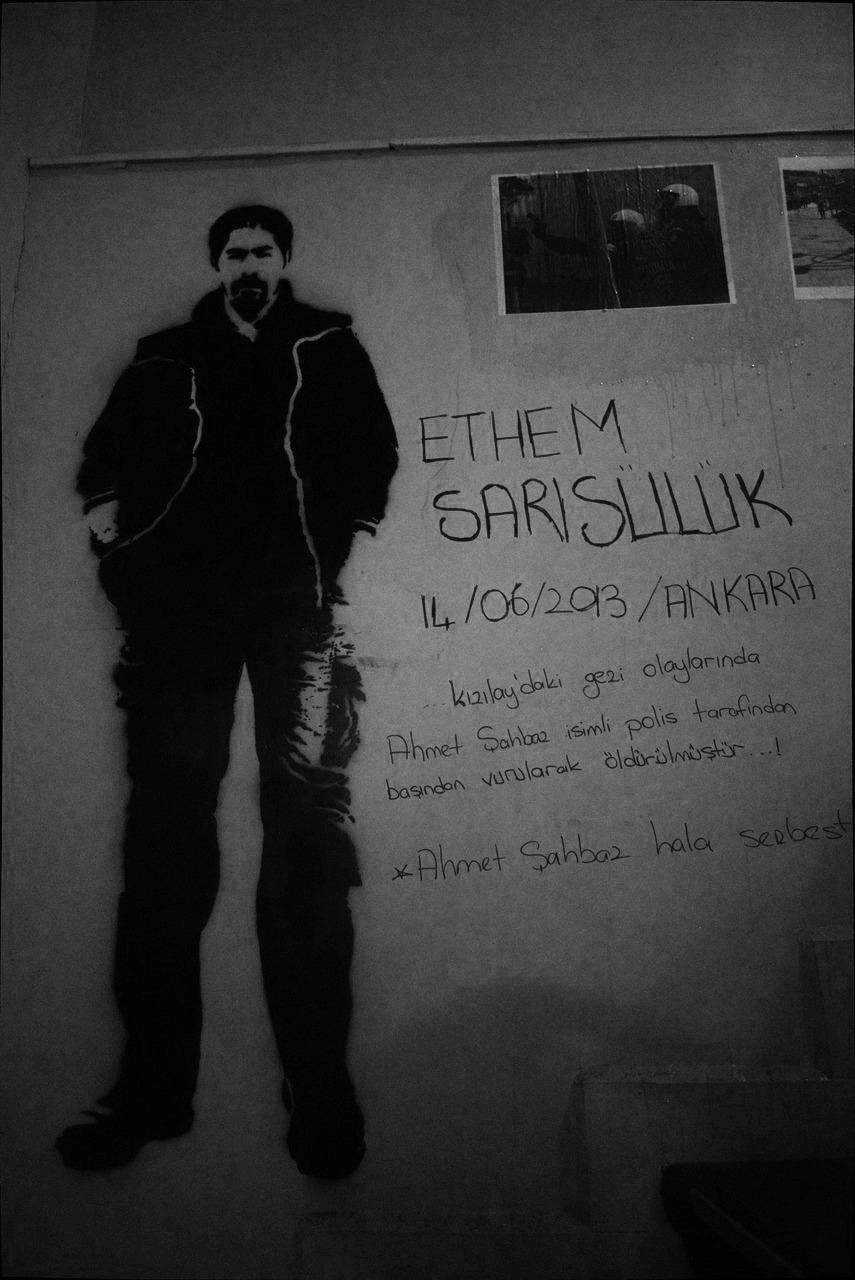 ETHEM
SARISÜLÜK
14/06/2013/ANKARA
...kızılay'daki gezi olaylarında
Ahmet Şahbaz isimli polis tarafından
başından vurularak öldürülmüştür...!
*Ahmet Şahbaz hala serbest